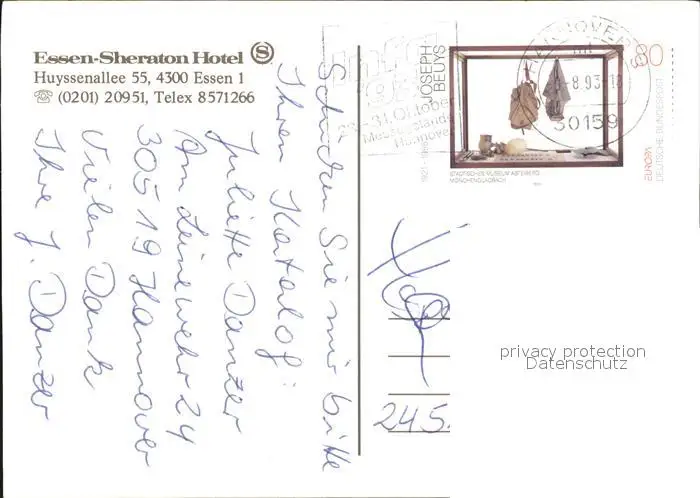 Essen-Sheraton Hotel S
Huyssenallee 55, 4300 Essen 1
☏ (0201) 20951, Telex 8571266
Schicken Sie mir bitte
Ihren Katalog:
Juliette Danzer
Am Leinewehr 24
30519 Hannover
Vielen Dank
Ihre J. Danzer
31. Oktober
Hannover
HANNOVER
-8.93-18
30159
JOSEPH BEUYS
1921-1986
80
DEUTSCHE BUNDESPOST
EUROPA
STÄDTISCHES MUSEUM ABTEIBERG
MÖNCHENGLADBACH
245.
privacy protection
Datenschutz